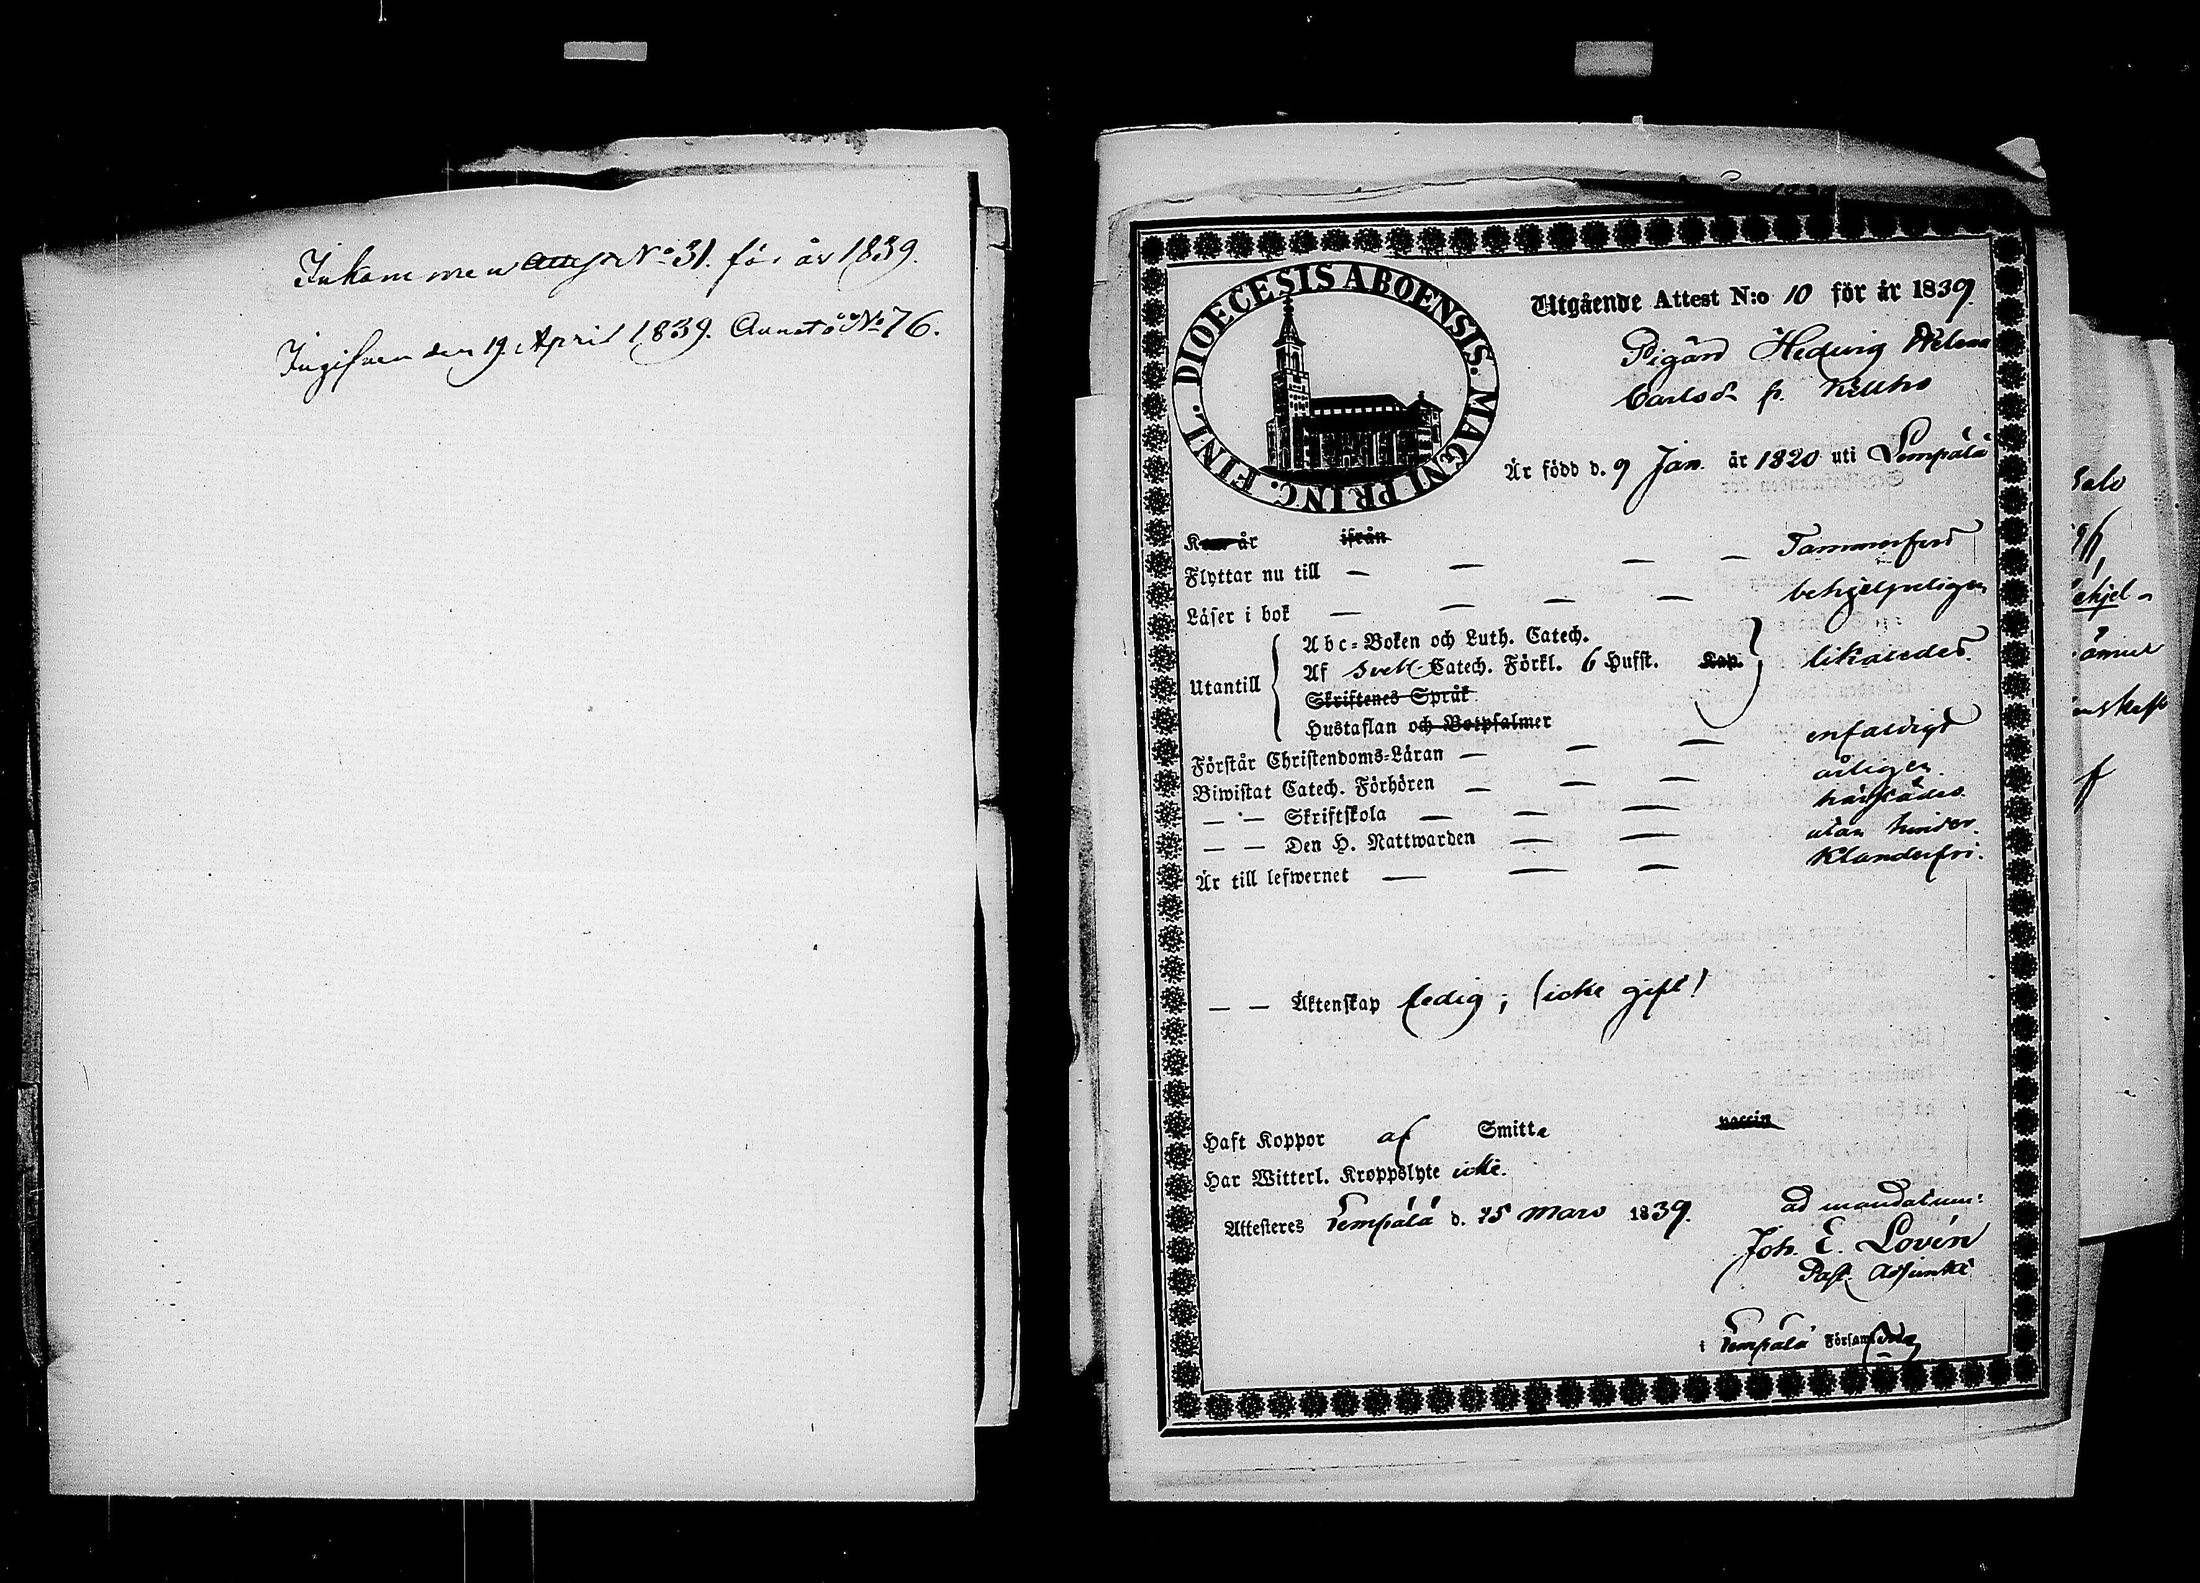 Inkommen Att N:o 31. för år 1839.
Ingifven den 19 April 1839. N:o 76.
DIOECESIS ABOENSIS. MAGNI PRINC. FINL.
Utgående Attest N:o 10 för år 1839.
Pigan Hedvig Helena
Carlsdr fr.
Är född d. 9 Jan. år 1820 uti Lempälä
Kom år ifrån
Flyttar nu till — — — — Tammerfors
Läser i bok — — — — behjelpeligen
Utantill
Abc-Boken och Luth. Catech.
Af Sveb Catech. Förkl. 6 Hufst. Kap. likaledes.
Skriftenes Språk
Hustaflan och Botpsalmer
Förstår Christendoms-Läran — — — enfaldigt
Biwistat Catech. Förhören — — — årligen.
— — Skriftskola — — —
— — Den H. Nattwarden — — utan hinder.
Är till lefwernet — — — Klanderfri.
— — Äktenskap ledig; (icke gift)
Haft Koppor af Smitta vaccin
Har Witterl. Kroppslyte icke.
Attesteres Lempälä d. 15 Mars 1839.
ad mandatum:
Joh. E. Lovén
Past. Adjunkt
i Lempälä Församling